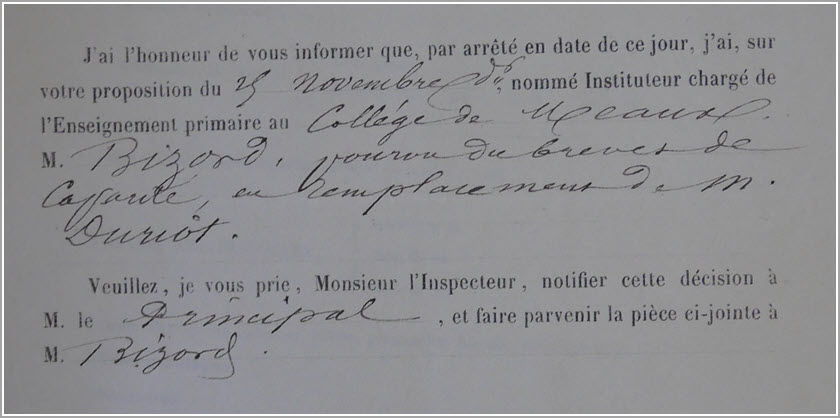 J'ai l'honneur de vous informer que, par arrêté en date de ce jour, j'ai, sur
votre proposition du 25 novembre dr, nommé Instituteur chargé de
l'Enseignement primaire au Collége de Meaux.
M. Bizord, pourvu du brevet de
Capacité, en remplacement de m.
Duriôt.
Veuillez, je vous prie, Monsieur l'Inspecteur, notifier cette décision à
M. le Principal, et faire parvenir la pièce ci-jointe à
M. Bizord.